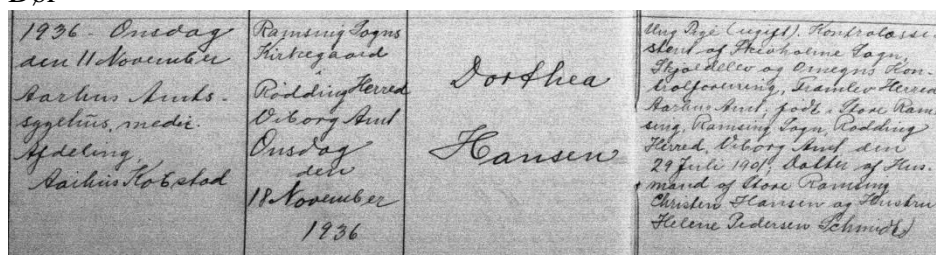 1936 - Onsdag
den 11 November
Aarhus Amts-
sygehus, medic.
Afdeling,
Aarhus Købstad
Ramsing Sogns
Kirkegaard
Rødding Herred
Viborg Amt
Onsdag
den
18 November
1936
Dorthea
Hansen
Ung Pige (ugift). Kontrolassi-
stent af Skivholme Sogn,
Skjoldelev og Omegns Kon-
trolforening, Framlev Herred
Aarhus Amt, født i Store Ram-
sing, Ramsing Sogn, Rødding
Herred, Viborg Amt den
29 Juli 1901, Datter af Hus-
mand af Store Ramsing
Christen Hansen og Hustru
Helene Pedersen Schmidt